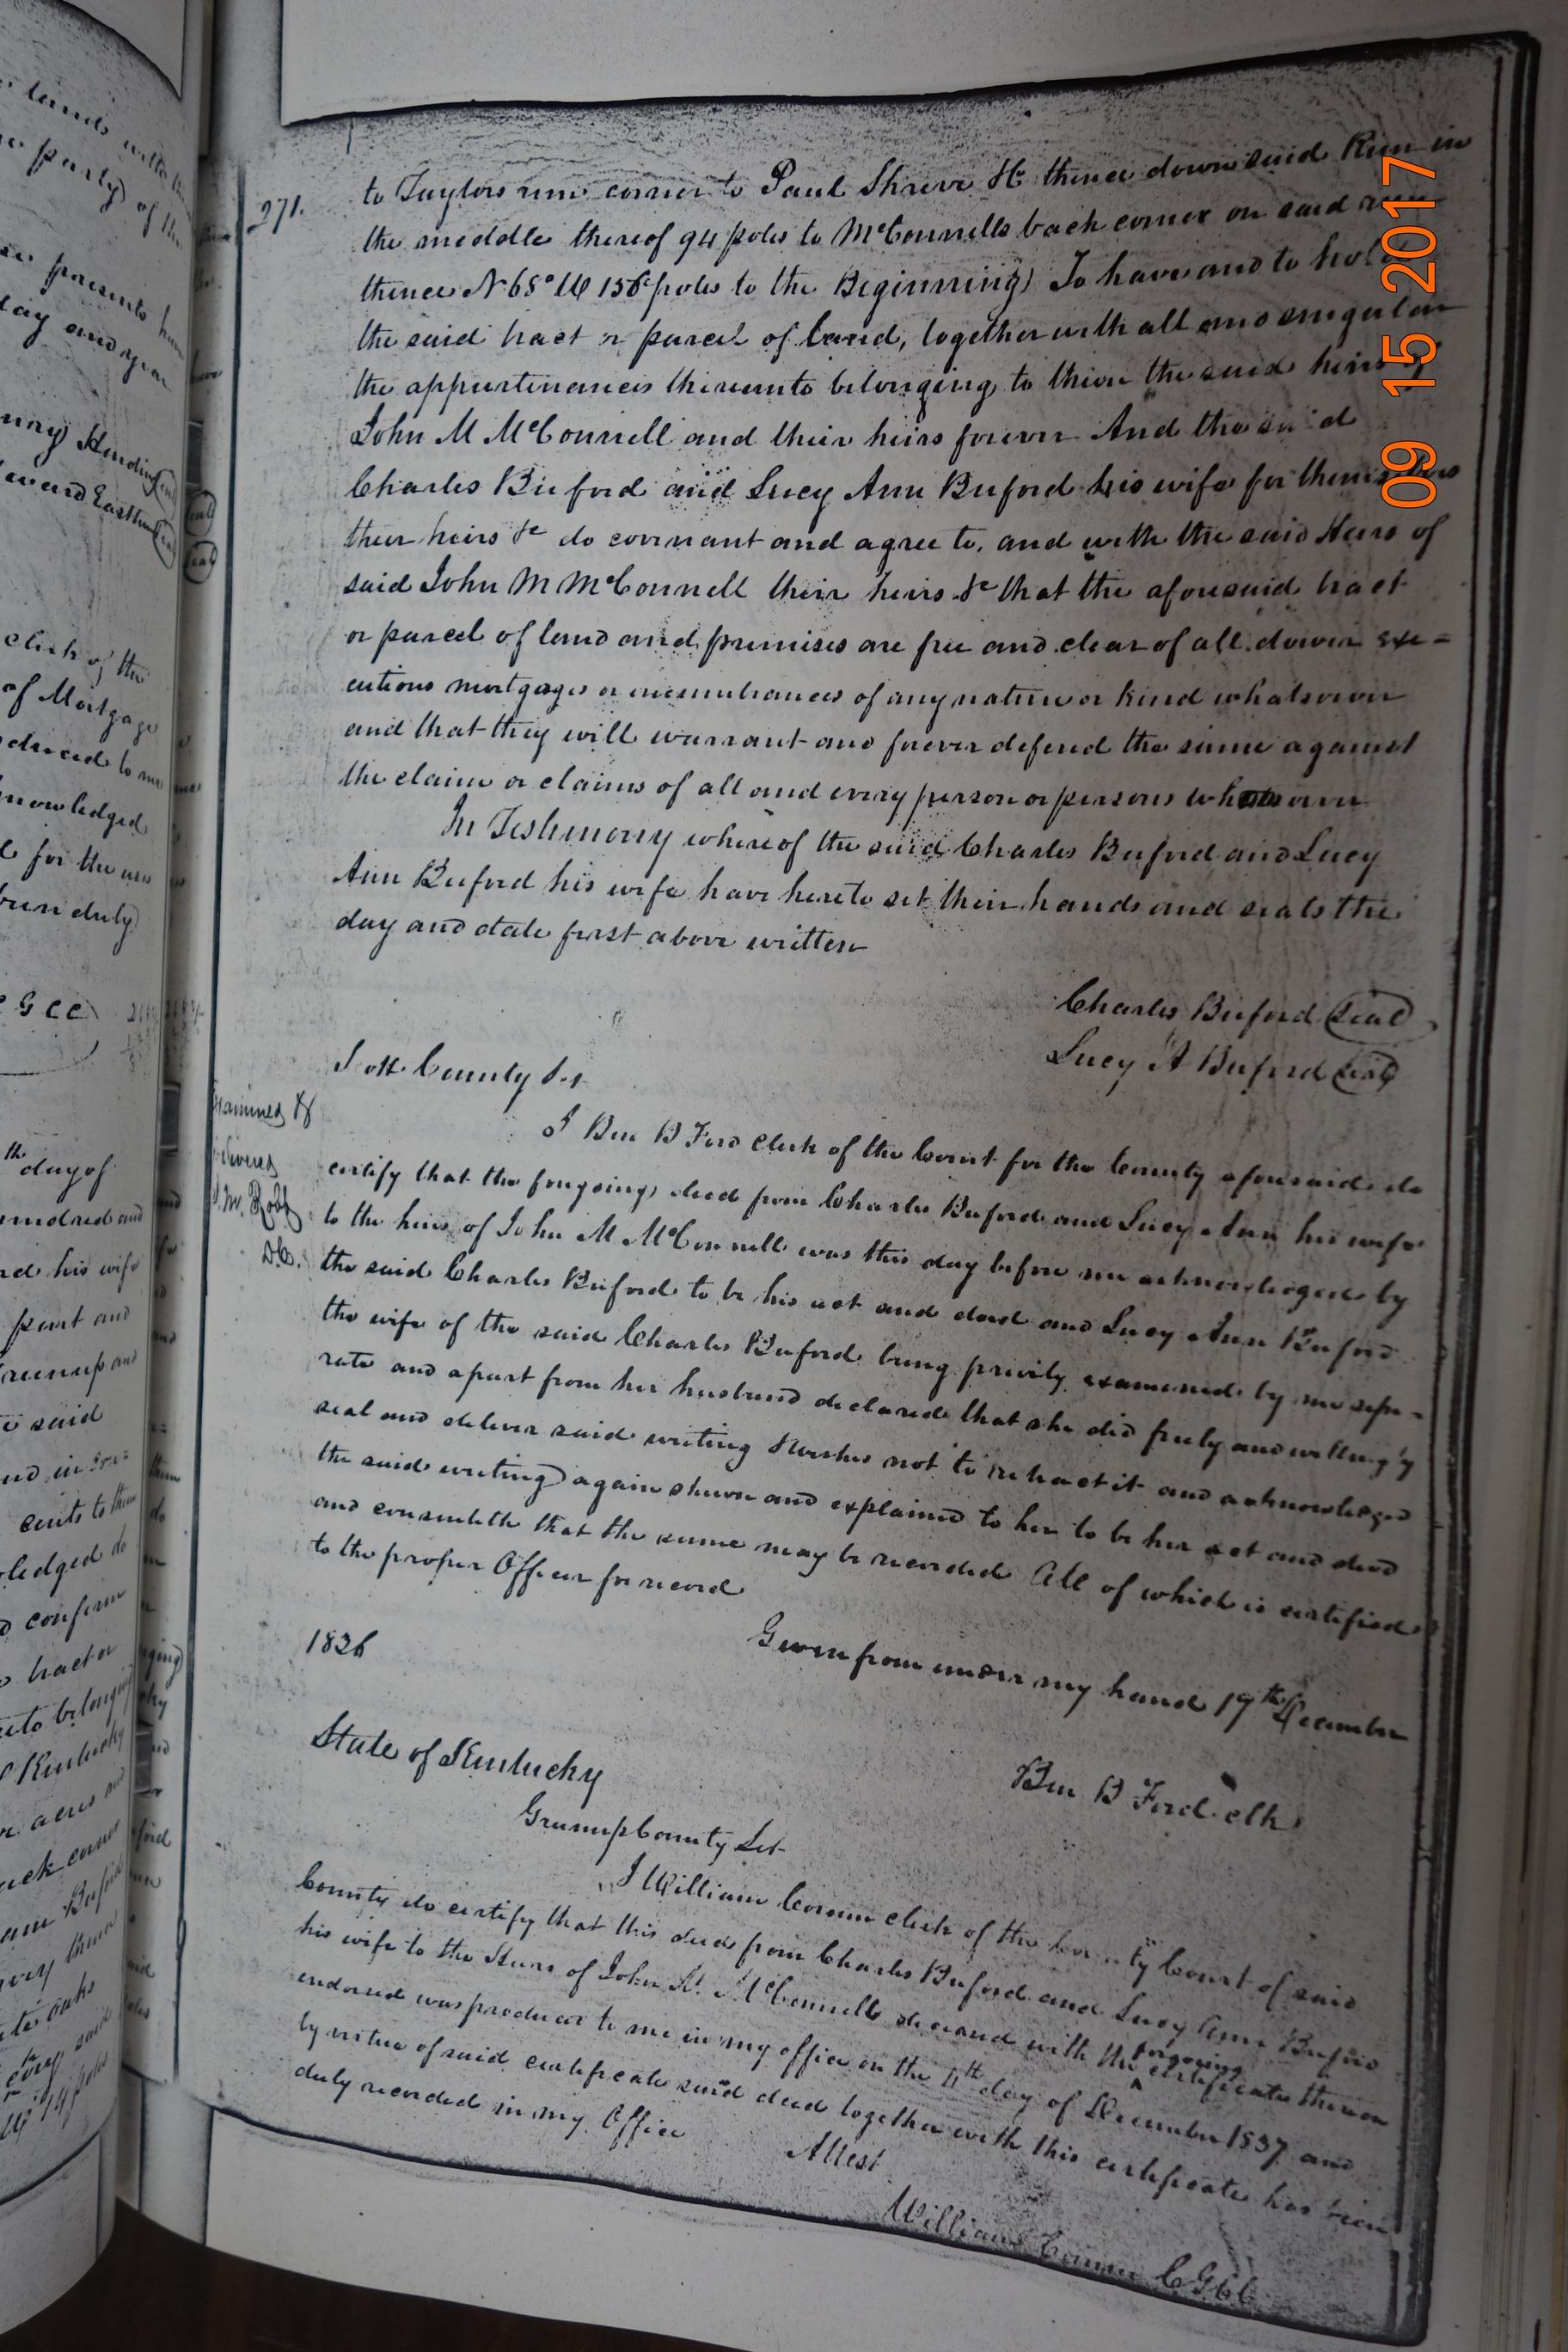 271.
to Taylors run corner to Paul Shreve &c thence down said Run in
the meddle thereof 94 poles to McConnells back corner on said run
thence N 68° W 156 poles to the Beginning) To have and to hold
the said tract or parcel of land, together with all and singular
the appurtinances thereunto belonging to them the said heirs of
John M McConnell and their heirs forever And the said
Charles Buford and Lucy Ann Buford his wife for themselves
their heirs &c do covenant and agree to, and with the said Heirs of
said John M McConnell their heirs &c that the aforesaid tract
or parcel of land and premises are free and clear of all dower exe-
cutions mortgages or incumbrances of any nature or kind whatsoever
and that they will warrant and forever defend the same against
the claim or claims of all and every person or persons whatsoever
In Testimony whereof the said Charles Buford and Lucy
Ann Buford his wife have hereto set their hands and seals the
day and date first above written
Charles Buford Seal
Lucy A Buford Seal
Scott County Sct
Examined &
Delivered
J. M. Robb
D.C.
I Ben B Ford clerk of the Court for the County aforesaid do
certify that the foregoing deed from Charles Buford and Lucy Ann his wife
to the heirs of John M McConnell was this day before me acknowledged by
the said Charles Buford to be his act and deed and Lucy Ann Buford
the wife of the said Charles Buford being privily examened by me sepe-
rate and apart from her husband declared that she did freely and willingly
seal and deliver said writing & wishes not to retract it and acknowledged
the said writing again shown and explained to her to be her act and deed
and consenteth that the same may be recorded All of which is certified
to the proper Officer for record
Given from under my hand 19th December
1836
Ben B Ford clk
State of Kentucky
Greenup County Sct
I William Corum clerk of the County Court of said
County do certify that this deed from Charles Buford and Lucy Ann Buford
his wife to the Heirs of John M. McConnell deceased with the foregoing certificate thereon
endorsed was produced to me in my office on the 4th day of December 1837 and
by virtue of said certificate said deed together with this certificate has been
duly recorded in my Office
Attest
William Corum C G C C
09 15 2017